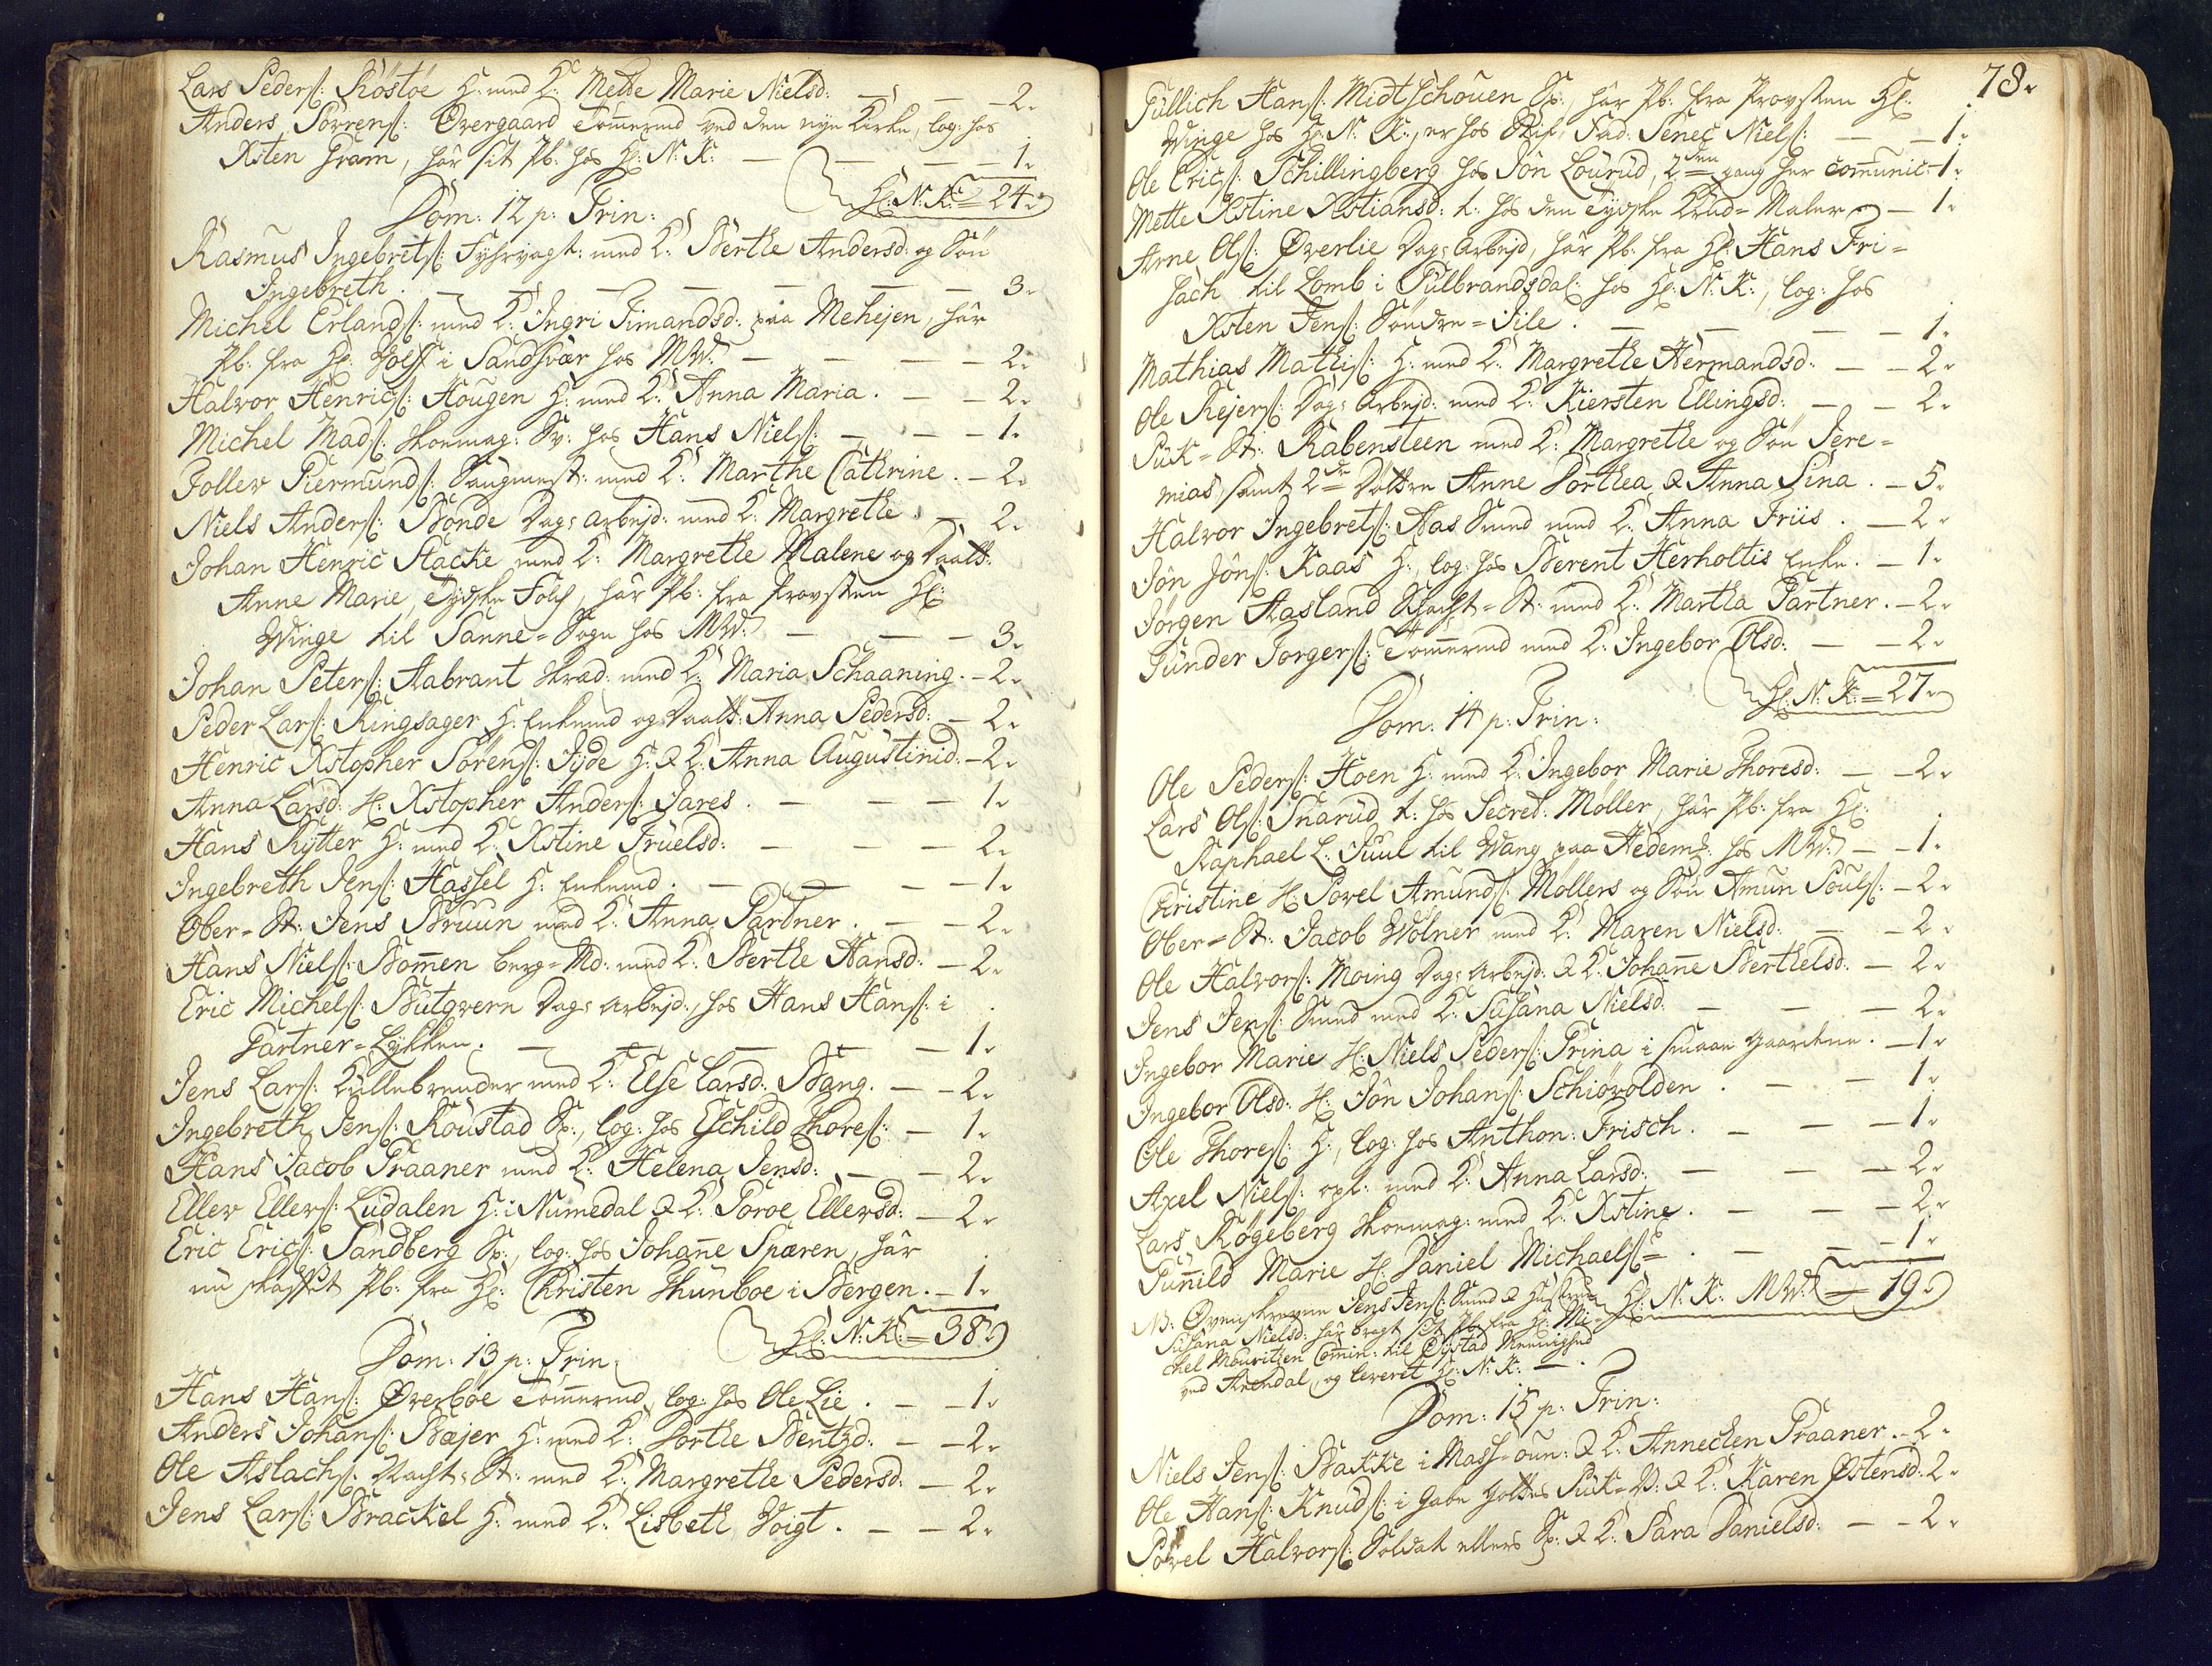 Lars Peders: Röstöe H: med K: Mette Marie Nielsd: — — — 2.
Anders Sörrens: Overgaard Tömermd ved den nye Kirke, log: hos
Xsten Gram, har sit Pb: hos Hr: N: K: — — — 1.
Hr: N: K: = 24.
Dom: 12 p: Trin:
Rasmus Ingebrets: Fyhrvagt: med K: Berthe Andersd: og Sön
Ingebreth. — — — — — — 3.
Michel Erlands: med K: Ingri Simandsd: paa Mehejen, har
Pb: fra Hr: Wolff i Sandsvær hos MW: — — — — 2.
Halvor Henrics: Hougen H: med K: Anna Maria. — — 2.
Michel Mads: Skoemag: Sv: hos Hans Niels: — — — 1.
Tollev Piermunds: Saugmest: med K: Marthe Cathrine. — 2.
Niels Anders: Bonde Dags arbejd: med K: Margrethe. — 2.
Johan Henric Stacke med K: Margrethe Malene og Daatt:
Anne Marie, Tydske Folch, har Pb: fra Provsten Hr:
Winge til Sanne = Sogn hos MW: — — — 3.
Johan Peters: Aabrant skræd: med K: Maria Schaaning. — 2.
Peder Lars: Ringsager H: Enkemd og Daatt: Anna Pedersd: — 2.
Henric Xstopher Sörens: Jyde H: & K: Anna Augustinid: — 2.
Anna Larsd: H: Xstopher Anders: Jares. — — — 1.
Hans Rytter H: med K: Xstine Truelsd: — — — 2.
Ingebreth Jens: Hassel H: Enkemd. — — — 1.
Ober = St: Jens Bruun med K: Anna Partner. — — 2.
Hans Niels: Bomen berg = Md: med K: Berthe Hansd: — 2.
Eric Michels: Butgvern Dags arbejd:, hos Hans Hans: i
Partner = Løkken. — — — — — 1.
Jens Lars: Kullebrender med K: Else Larsd: Bang. — — 2.
Ingebreth Jens: Roustad Sp:, log: hos Eschild Thores: — 1.
Hans Jacob Praaner med K: Helena Jensd: — — 2.
Ellev Ellevs: Ludalen H: i Numedal & K: Toroe Ellevsd: — 2.
Eric Erics: Sandberg Sp:, log: hos Johane Sparen, har
nu skaffet Pb: fra Hr: Christen Thunboe i Bergen. — 1.
Hr: N: K: = 38.
Dom: 13 p: Trin:
Hans Hans: Øverböe Tömermd, log: hos Ole Lie. — — 1.
Anders Johans: Bæjer H: med K: Dorthe Bentzd: — — 2.
Ole Aslachs: Vacht = St: med K: Margrethe Pedersd: — 2.
Jens Lars: Brackel H: med K: Lisbeth Voigt. — — 2.
78.
Gullich Hans: Midtschouen Sp:, har Pb: fra Provsten Hr:
Winge hos Hr: N: K:, er hos Sad: Senec Niels: — — 1.
Ole Erics: Schillingberg hos Jön Lourud, 2den gang her comunic: — 1.
Mette Xstine Xstiansd: t: hos den Tydske Maler — — 1.
Arne Ols: Øverlie Dags arbejd, har Pb: fra Hr: Hans Fri =
sach til Lomb i Gulbrandsdal: hos Hr: N: K:, log: hos
Xsten Jens: Söndre = Sile. — — — — 1.
Mathias Mathis: H: med K: Margrethe Hermandsd: — — 2.
Ole Rejers: Dags Arbejd: med K: Kiersten Ellingsd: — — 2.
Puk = St: Rabensteen med K: Margrethe og Sön Jere =
mias, samt 2de Döttre Anne Dorthea & Anna Sina. — 5.
Halvor Ingebrets: Aas Smed med K: Anna Friis. — 2.
Jön Jöns: Kaas H:, log: hos Berent Herholtis Enke. — 1.
Jörgen Aasland Schacht = St: med K: Martha Partner. — 2.
Gunder Torgers: Tömermd med K: Ingebor Olsd: — — 2.
Hr: N: K: = 27.
Dom: 14 p: Trin:
Ole Peders: Hoen H: med K: Ingebor Marie Thoresd: — — 2.
Lars Ols: Snarud t: hos Secret: Møller, har Pb: fra Hr:
Raphael L: Juul til Wang paa Hedem: hos MW: — — 1.
Christine H: Povel Amunds: Mollers og Sön Amun Pouls: — 2.
Ober = St: Jacob Wölner med K: Maren Nielsd: — — 2.
Ole Halvors: Moing Dags Arbejd: & K: Johane Berthelsd: — 2.
Jens Jens: Smed med K: Susana Nielsd: — — — 2.
Ingebor Marie H: Niels Peders: Trina i smaae Gaardene. — 1.
Ingebor Olsd: H: Jön Johans: Schiövolden. — — 1.
Ole Thores: H:, log: hos Anthon: Frisch. — — — 1.
Axel Niels: opl: med K: Anna Larsd: — — — 2.
Lars Røgeberg skoemag: med K: Xstine. — — — 2.
Gunild Marie H: Daniel Michaels: = — — — 1.
Hr: N: K: MW: = 19.
NB: Ovenskrevne Jens Jens: Smed & Hustrue
Susana Nielsd: har bragt sit Pb: fra Hr: Mi =
chel Mouritzen Comin: til Öystad Menighed
ved Arendal, og leveret Hr: N: K: —
Dom: 15 p: Trin:
Niels Jens: Bakke i Mass = oun: & K: Annecken Praaner. — 2.
Ole Hans: Knuds: i Gabe Gottes Puk = V: & K: Karen Østensd: 2.
Povel Halvors: Soldat ellers Sp: & K: Sara Danielsd: — — 2.